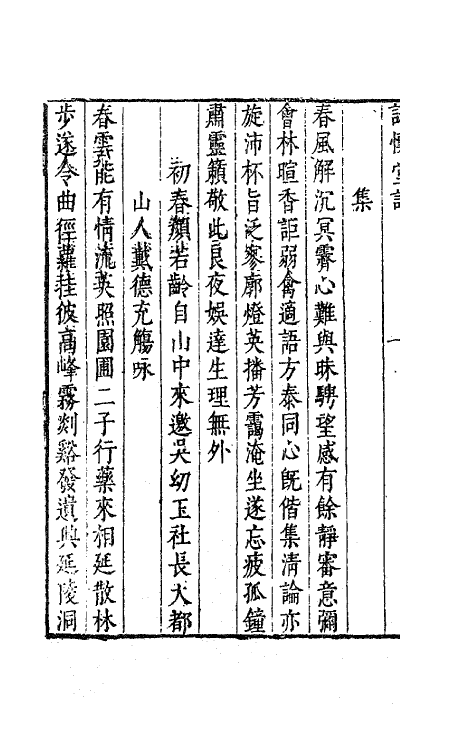 集
春風解沉冥霽心難與昧騁望感有餘靜審意彌
會林暄香詎弱禽適語方泰同心旣偕集清論亦
旋沛杯旨泛寥廓燈英播芳靄淹坐遂忘疲孤鐘
肅靈籟敬此良夜娛達生理無外
初春顏若齡自山中來邀吳幼玉社長大都
山人戴德充觴咏
春雲能有情流英照園圃二子行藥來相延散林
步遂令曲徑蘿挂彼高峰霧剡谿發遺興延陵洞